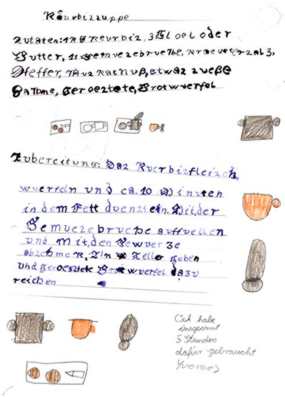 Kürbizzuppe
Zutaten: 1 kg Kürbiz, 3 El oel oder
Butter, 1l gemuezebruehe, Kraeuterzalz,
Pfeffer, Muzkatnuß, etwaz zueße
Sahne, Geroeztete Brotwuerfel.
Zubereitung: Daz Kuerbizfleizch
wuerfeln und ca. 10 Minuten
in dem Fett duenzten. Mit der
Gemuezebruehe auffuellen
und mit den Gewuerze
abzchmeken, in Teller geben
und geroeztete Brotwuerfel dazu
reichen
Ich habe
insgesamt
5 Stunden
dafür gebraucht